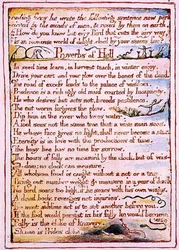 roding fires he wrote the following sentence now per
cieved by the minds of men, & read by them on earth.
How do you know but ev'ry Bird that cuts the airy way,
Is an immense world of delight, clos'd by your senses five?
Proverbs of Hell
In seed time learn, in harvest teach, in winter enjoy.
Drive your cart and your plow over the bones of the dead.
The road of excess leads to the palace of wisdom.
Prudence is a rich ugly old maid courted by Incapacity.
He who desires but acts not, breeds pestilence.
The cut worm forgives the plow.
Dip him in the river who loves water.
A fool sees not the same tree that a wise man sees.
He whose face gives no light, shall never become a star.
Eternity is in love with the productions of time.
The busy bee has no time for sorrow.
The hours of folly are measur'd by the clock, but of wis-
-dom: no clock can measure.
All wholsom food is caught without a net or a trap.
Bring out number weight & measure in a year of dearth.
No bird soars too high, if he soars with his own wings.
A dead body, revenges not injuries.
The most sublime act is to set another before you.
If the fool would persist in his folly he would become
Folly is the cloke of knavery.
Shame is Prides cloke.